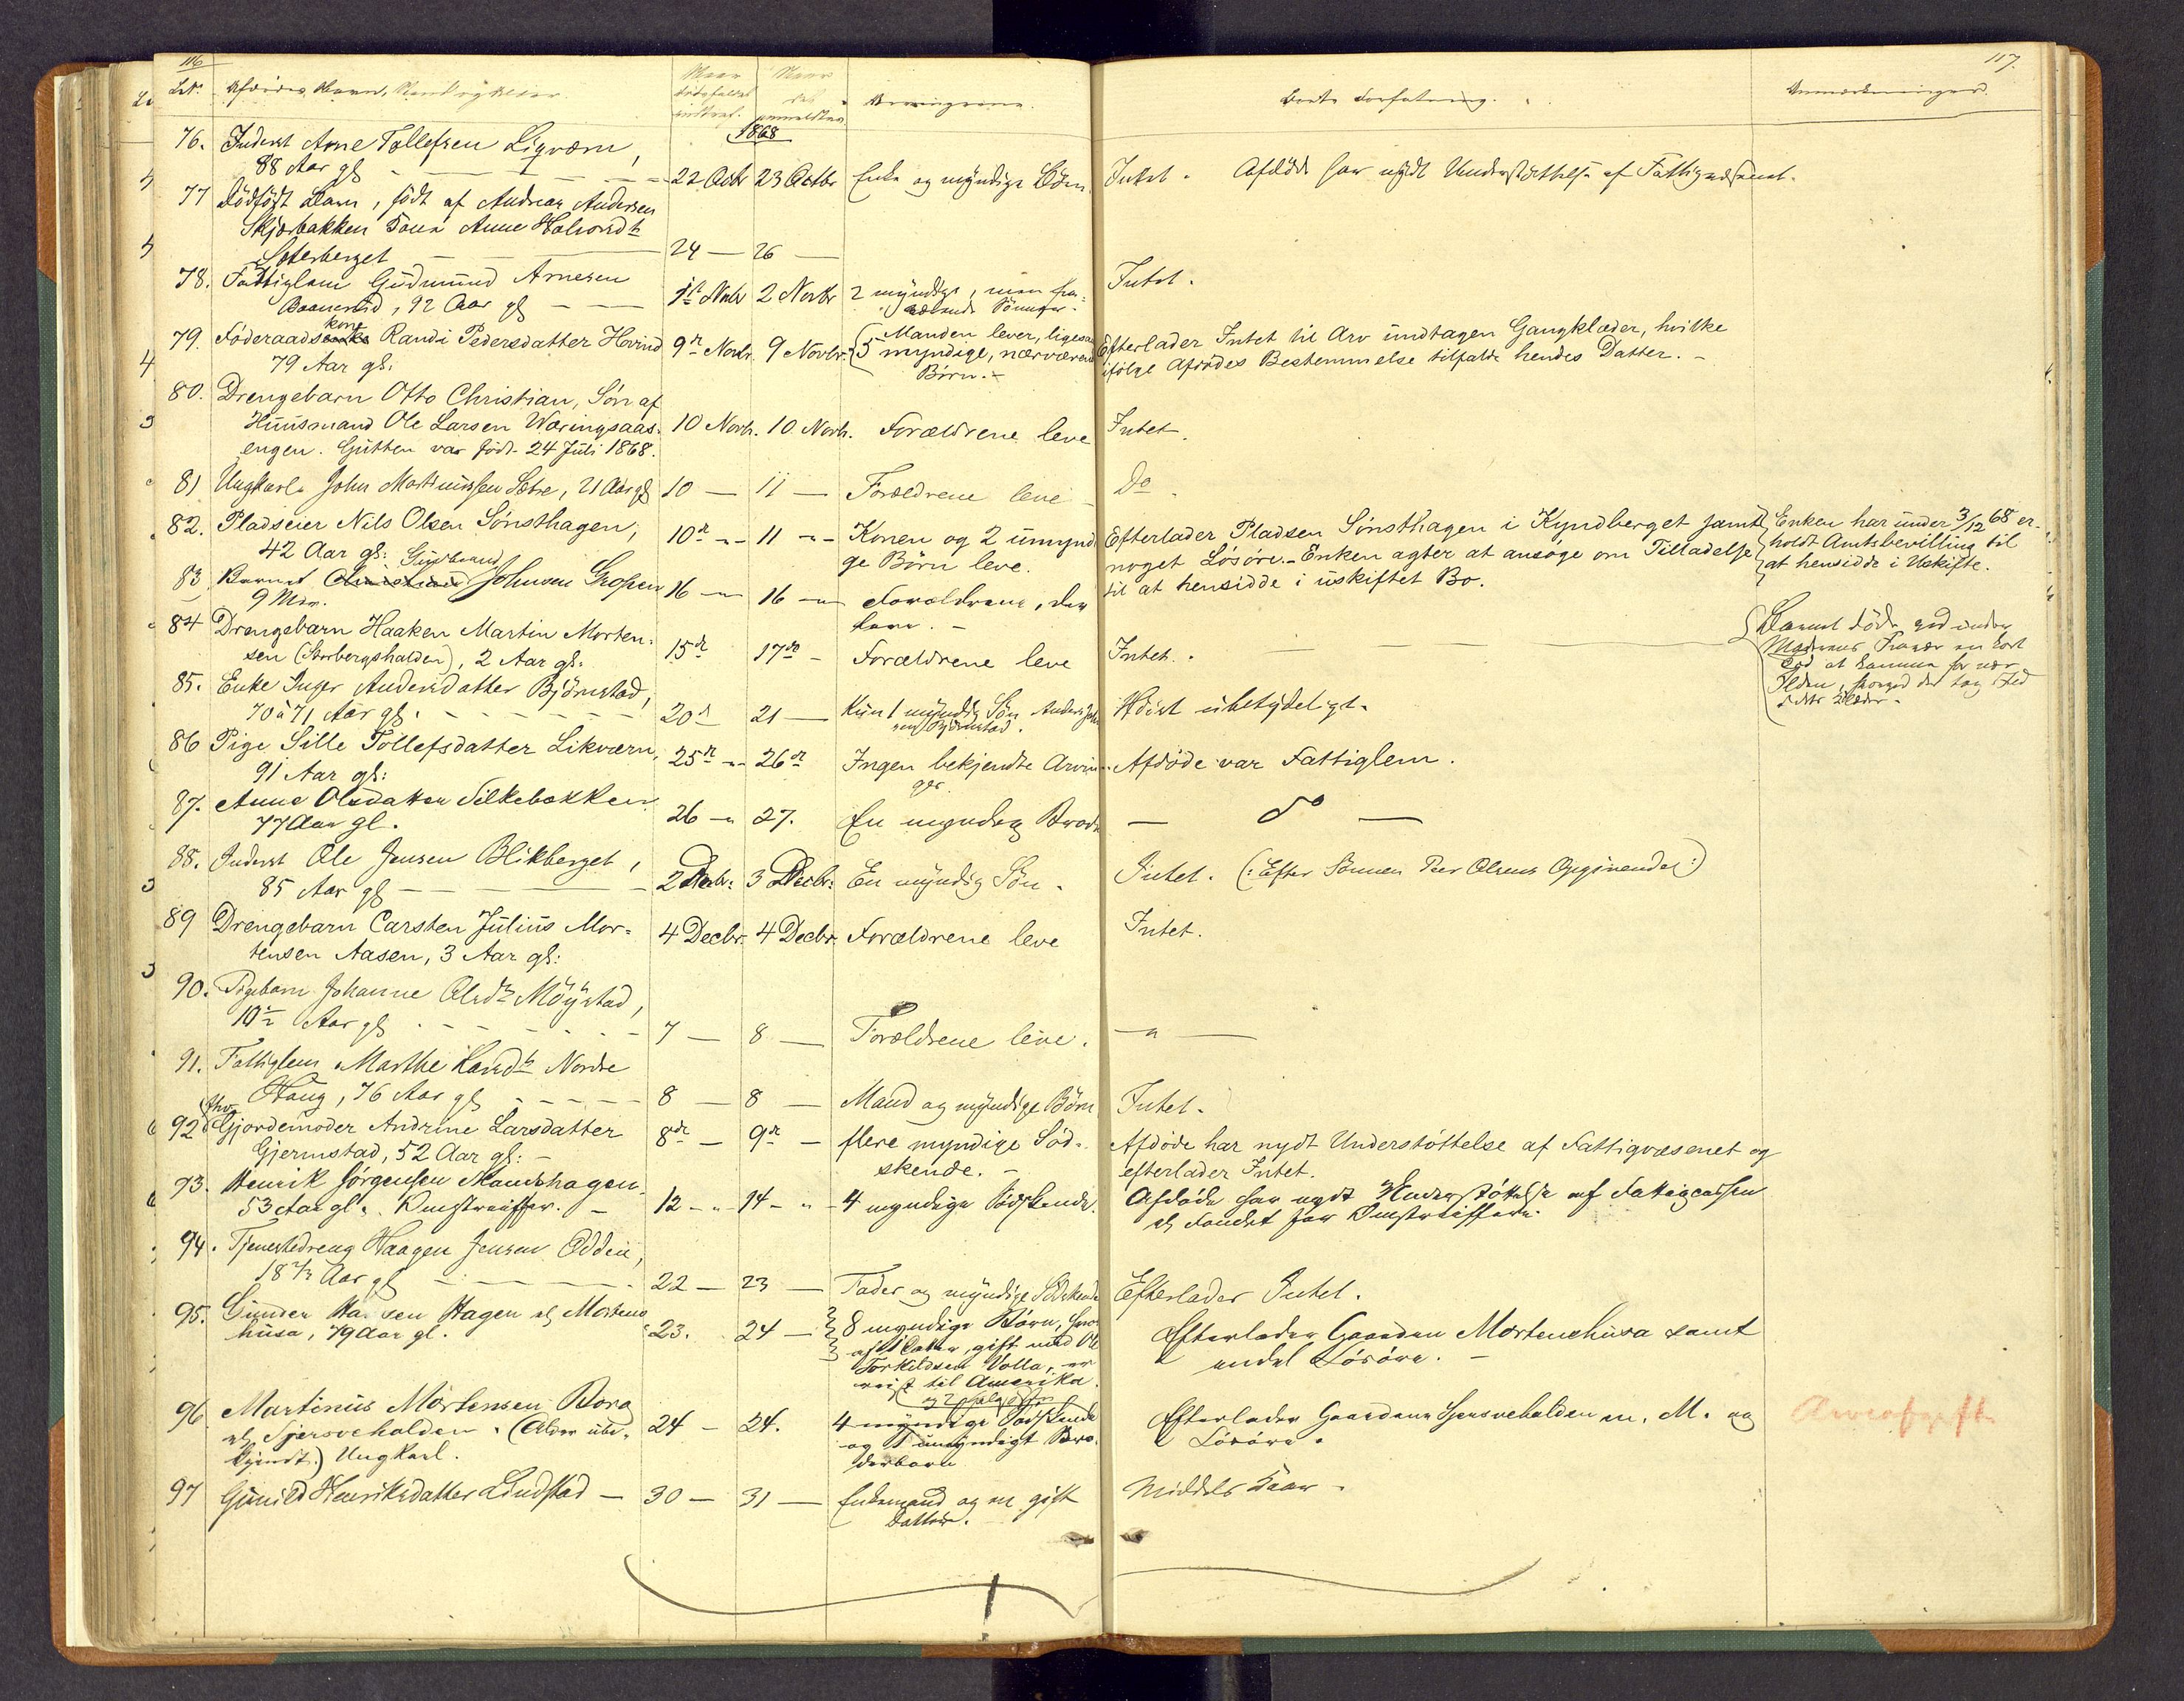 116
117.
Lnr. Afdødes Navn,
Naar dødsfaldet indtraf.
Naar det anmeldtes.
Arvingerne.
Boets Forfatning.
Anmærkninger.
1868
76. Inderst Arne Tollefsen Liqværn,
88 Aar gl 22 Octbr 23 Octbr Enke og myndige Børn. Intet. Afdøde har nydt Understøttelse af Fattigvæsenet.
77 Dødfødt Barn, født af Andreas Andersen
Skjærbakken Anne Halvorsdtr
Sæterberget 24 — 26 —
78. Fattiglem Gudmund Arnesen
92 Aar gl 1ste Novbr 2 Novbr 2 myndige, men fra-
værende Sønner. Intet.
79. Føderaadskone Randi Pedersdatter Hovind 9de Novbr. 9 Novbr. Manden lever, ligesaa
79 Aar gl: 5 myndige, nærværende
Børn.
Efterlader Intet til Arv undtagen Gangklæder, hvilke
ifølge Afdødes Bestemmelse tilfalde hendes Datter. -
80. Drengebarn Otto Christian, Søn af
Huusmand Ole Larsen Wæringsaas- 10 Novb. 10 Novb. Forældrene leve Intet.
engen. Gutten var født 24 Juli 1868.
81 Ungkarl John Martinussen Sætre, 21 Aar gl 10 — 11 — Forældrene leve Do.
82. Pladseier Nils Olsen Sønsthagen, 10de - 11 - Konen og 2 umyndi-
42 Aar gl: ge Børn leve.
Efterlader Pladsen Sønsthagen i Kyndberget samt
noget Løsøre. - Enken agter at ansøge om Tilladelse
til at hensidde i uskiftet Bo.
Enken har under 3/12 68 er-
holdt Amtsbevilling til
at hensidde i Uskifte.
83 Barnet Gudbrand Johnsen 16 — 16 — Forældrene,
9 Mdr. leve. -
84 Drengebarn Haaken Martin Morten-
sen (Storbergshalden), 2 Aar gl. 15de 17de - Forældrene leve Intet.
Barnet døde ved under
Moderens Fravær en kort
Tid at komme for nær
Ilden, hvorved der tog Ild
i dets Klæder.
85. Enke Inger Andersdatter Bjørnstad,
70 à 71 Aar gl. 20de 21 — Kun 1 myndig Søn Anders John-
sen Bjørnstad. Høist ubetydeligt.
86 Pige Sille Tollefsdatter Likværn, 25de - 26de Ingen bekjendte Arvin-
91 Aar gl: ger. Afdøde var Fattiglem.
87. Anne Olsdatter Silkebækken
77 Aar gl. 26 - 27. En myndig Broder — do —
88. Inderst Ole Jensen Blikberget,
85 Aar gl 2 Decbr: 3 Decbr: En myndig Søn. Intet. (: Efter Sønnen Peer Olsens Opgivende :)
89 Drengebarn Carsten Julius Mor- 4 Decbr. 4 Decbr. Forældrene leve Intet.
tensen Aasen, 3 Aar gl:
90. Pigebarn Johanne Olsdtr Möystad,
10½ Aar gl 7 — 8 — Forældrene leve. — " —
91. Fattiglem Marthe Nordre
Haug, 76 Aar gl 8 — 8 — Mand og myndige Børn Intet.
92 Gjordemoder Andrine Larsdatter 8de — 9de — flere myndige Søds-
Gjermstad, 52 Aar gl: - kende. -
Afdøde har nydt Understøttelse af Fattigvæsenet og
efterlader Intet.
93. Henrik Jørgensen Mandshagen
53 Aar gl. Omstreiffer. - 12 - " - 14 - " - 4 myndige Sødskende.
Afdøde har nydt Understøttelse af Fattigcassen
som Omstreiffer.
94. Tjenestedreng Haagen Jensen Odden,
18 Aar gl 22 — 23 — Fader og myndige Sødskende Efterlader Intet.
95. Gunder Hansen Hagen el Mortens-
husa, 79 Aar gl. 23. 24 — 8 myndige Børn,
af 1 Datter, gift med Ole
Torkildsen Volla, er
reist til Amerika.
Efterlader Gaarden Mortenshusa samt
endel Løsøre. -
96 Martinus Mortensen Bora 24 — 24. 4 myndige Sødskende
(Alder ube- og 1 umyndigt Bro-
kjendt.) Ungkarl. derbarn
Efterlader Gaardene m. M. og
Løsøre.
Arveafgift
97 Gunild Henriksdatter Lindstad — 30 — 31 — Enkemand og en gift
Datter. Middels Kaar.